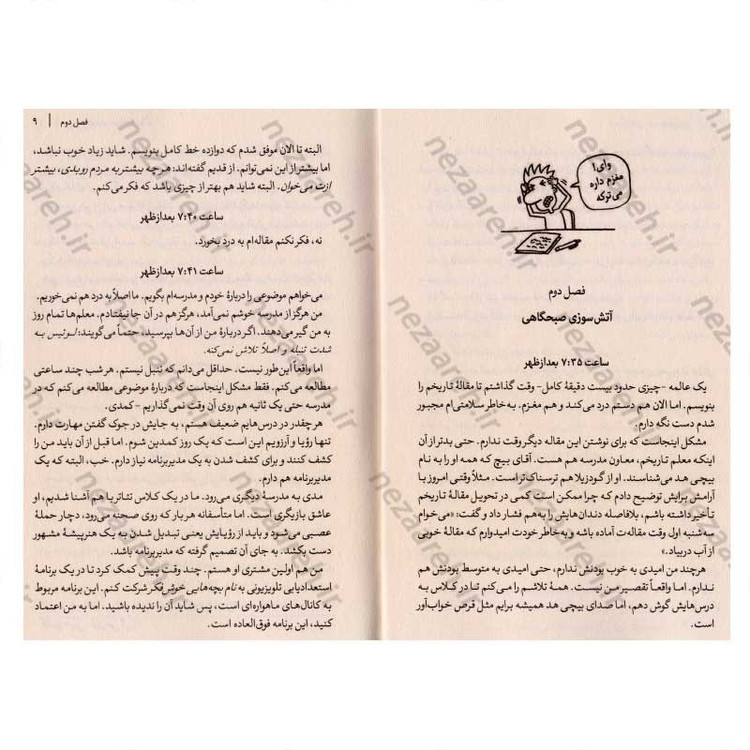 وای!
مغزم داره
می‌ترکه
فصل دوم
آتش‌سوزی صبحگاهی
ساعت ۷:۳۵ بعدازظهر
یک عالمه -چیزی حدود بیست دقیقهٔ کامل- وقت گذاشتم تا مقالهٔ تاریخم را
بنویسم. اما الان هم دستم درد می‌کند و هم مغزم. به‌خاطر سلامتی‌ام مجبور
شدم دست نگه دارم.
مشکل اینجاست که برای نوشتن این مقاله دیگر وقت ندارم. حتی بدتر از آن
اینکه معلم تاریخم، معاون مدرسه هم هست. آقای بیچ که همه او را به نام
بیچی هد می‌شناسند. او از گودزیلا هم ترسناک‌تر است. مثلاً وقتی امروز با
آرامش برایش توضیح دادم که چرا ممکن است کمی در تحویل مقالهٔ تاریخم
تأخیر داشته باشم، بلافاصله دندان‌هایش را به هم فشار داد و گفت: «می‌خوام
سه‌شنبه اول وقت مقاله‌ت آماده باشه و به‌خاطر خودت امیدوارم که مقالهٔ خوبی
از آب دربیاد.»
هرچند من امیدی به خوب بودنش ندارم، حتی امیدی به متوسط بودنش هم
ندارم. اما واقعاً تقصیر من نیست. همهٔ تلاشم را می‌کنم تا در کلاس به
درس‌هایش گوش دهم، اما صدای بیچی هد همیشه برایم مثل قرص خواب‌آور
است.
فصل دوم | ۹
البته تا الان موفق شدم که دوازده خط کامل بنویسم. شاید زیاد خوب نباشد،
اما بیشتر از این نمی‌توانم. از قدیم گفته‌اند: هرچه بیشتر به مردم رو بدی، بیشتر
ازت می‌خوان. البته شاید هم بهتر از چیزی باشد که فکر می‌کنم.
ساعت ۷:۴۰ بعدازظهر
نه، فکر نکنم مقاله‌ام به درد بخورد.
ساعت ۷:۴۱ بعدازظهر
می‌خواهم موضوعی را دربارهٔ خودم و مدرسه‌ام بگویم. ما اصلاً به درد هم نمی‌خوریم.
من هرگز از مدرسه خوشم نمی‌آمد، هرگز هم در آن جا نیفتادم. معلم‌ها تمام روز
به من گیر می‌دهند. اگر دربارهٔ من از آن‌ها بپرسید، حتماً می‌گویند: لوئیس به
شدت تنبله و اصلاً تلاش نمی‌کنه.
اما واقعاً این‌طور نیست. حداقل می‌دانم که تنبل نیستم. هر شب چند ساعتی
مطالعه می‌کنم. فقط مشکل اینجاست که دربارهٔ موضوعی مطالعه می‌کنم که در
مدرسه حتی یک ثانیه هم روی آن وقت نمی‌گذاریم - کمدی.
هر چقدر در درس‌هایم ضعیف هستم، به جایش در جوک گفتن مهارت دارم.
تنها رؤیا و آرزویم این است که یک روز کمدین شوم. اما قبل از آن باید من را
کشف کنند و برای کشف شدن به یک مدیربرنامه نیاز دارم. خب، البته که یک
مدیربرنامه هم دارم.
مدی به مدرسهٔ دیگری می‌رود. ما در یک کلاس تئاتر با هم آشنا شدیم. او
عاشق بازیگری است. اما متأسفانه هر بار که روی صحنه می‌رود، دچار حملهٔ
عصبی می‌شود و باید از رؤیایش یعنی تبدیل شدن به یک هنرپیشهٔ مشهور
دست بکشد. به جای آن تصمیم گرفته که مدیربرنامه باشد.
من هم اولین مشتری او هستم. چند وقت پیش کمک کرد تا در یک برنامهٔ
استعدادیابی تلویزیونی به نام بچه‌هایی خوش‌فکر شرکت کنم. این برنامه مربوط
به کانال‌های ماهواره‌ای است، پس شاید آن را ندیده باشید. اما به من اعتماد
کنید، این برنامه فوق‌العاده است.
nezaareh.ir